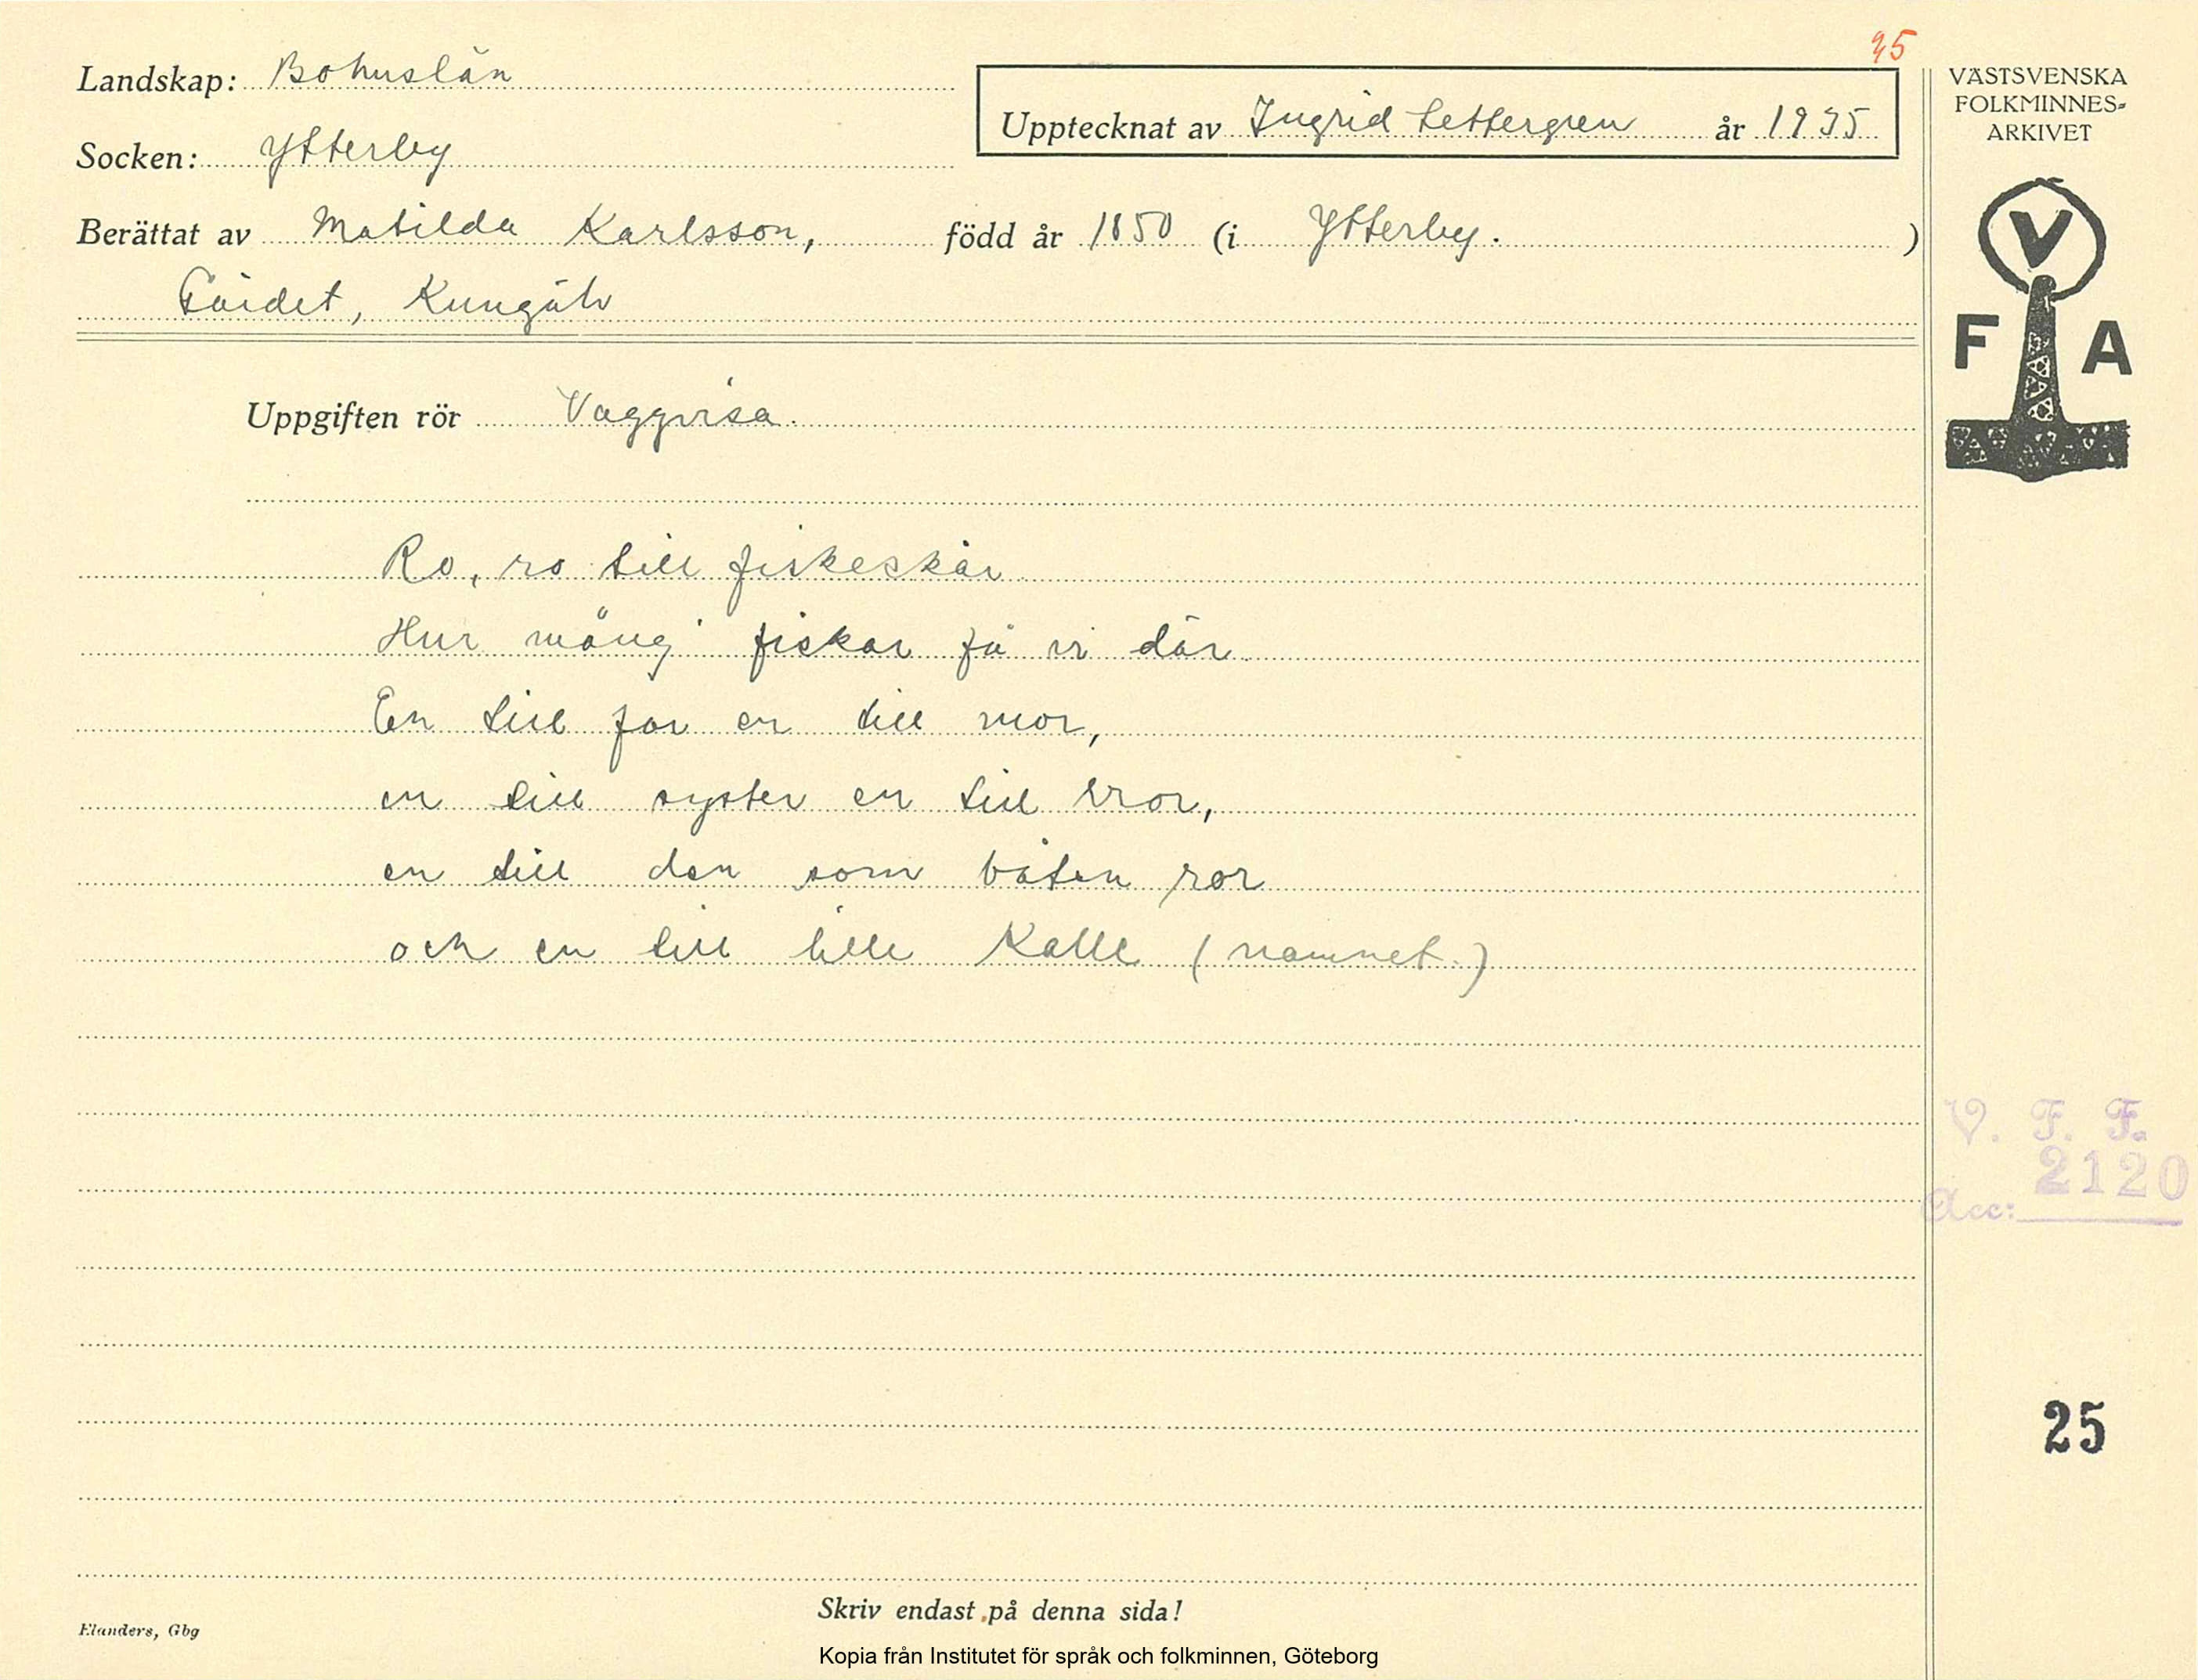 35
Landskap: Bohuslän
Upptecknat av Ingrid Settergren år 1935
Socken: Ytterby
Berättat av Matilda Karlsson, född år 1850 (i Ytterby. )
Gärdet, Kungälv
Uppgiften rör Vaggvisa.
Ro, ro till fiskeskär
Hur mång' fiskar få vi där
En till far en till mor,
en till syster en till bror,
en till den som båten ror
och en till lille Kalle (namnet.)
VÄSTSVENSKA
FOLKMINNES-
ARKIVET
V
F A
V. F. F.
2120
Acc:
25
Skriv endast på denna sida!
Elanders, Gbg
Kopia från Institutet för språk och folkminnen, Göteborg